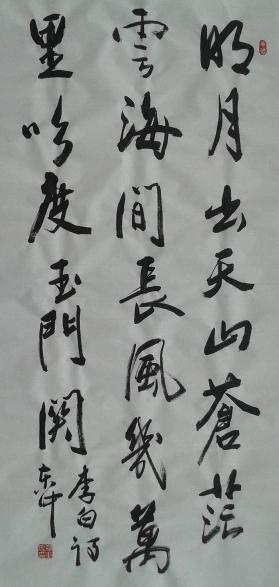 明月出天山蒼茫
雲海間長風幾萬
里吹度玉門関
李白詩